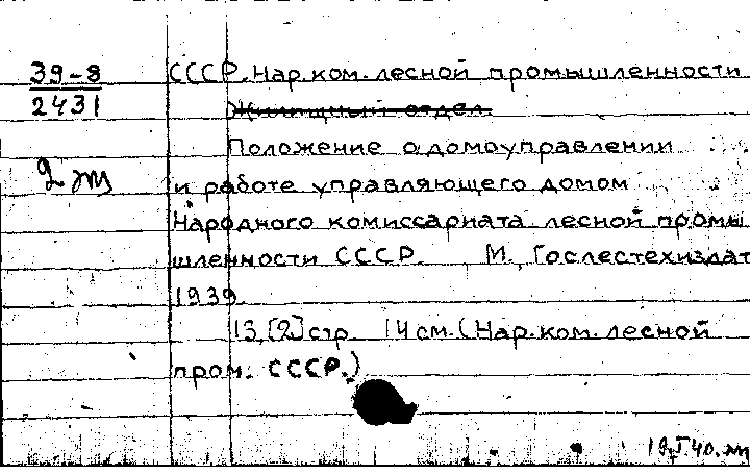 39-8
2431
СССР. Нар. ком. лесной промышленности
Жилищный отдел.
Положение о домоуправлении
и работе управляющего домом
Народного комиссариата лесной промы
шленности СССР. М., Гослестехиздат
1939.
13, [2] стр. 14 см. (Нар. ком. лесной
пром. СССР.)